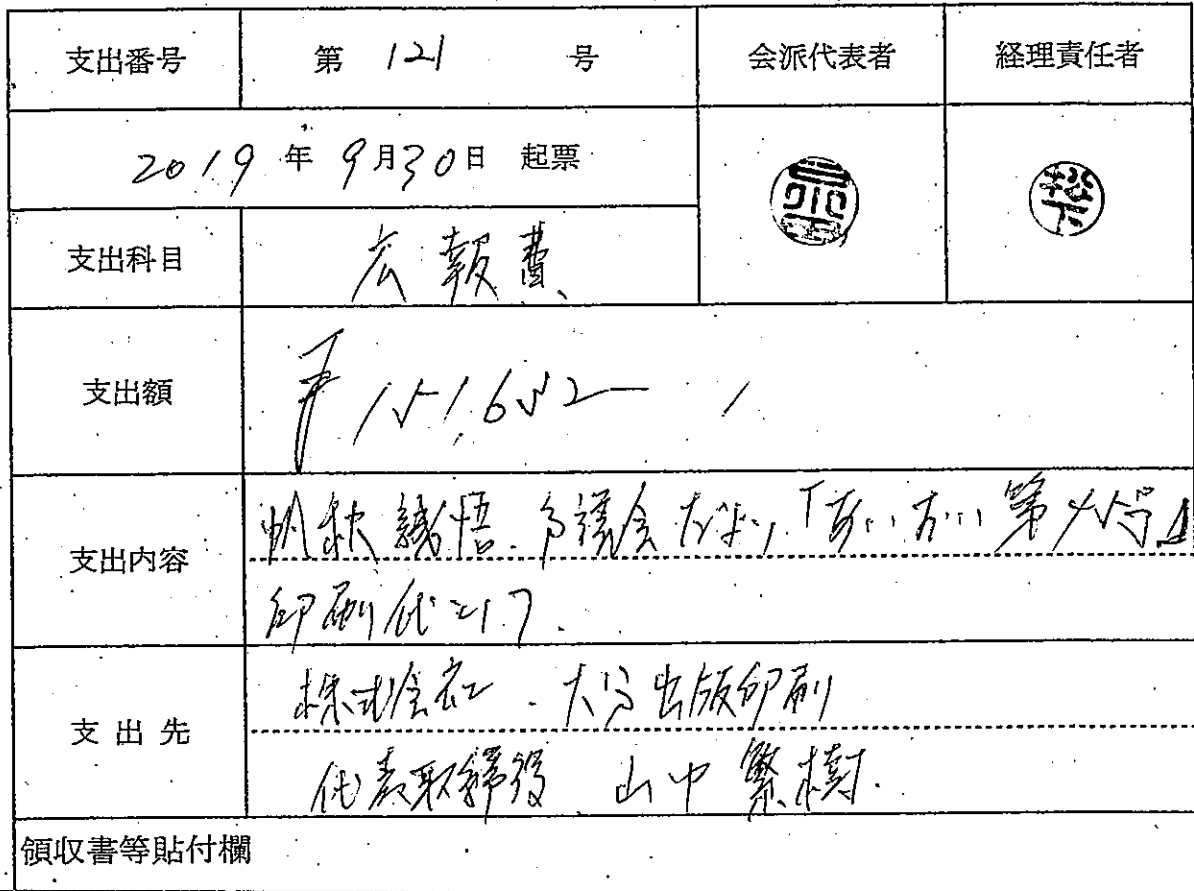 支出番号 第 121 号 会派代表者 経理責任者
2019 年 9月30日 起票
松下
支出科目 広報費
支出額 151,652—
支出内容 帆秋誠悟 議会だより「あいおい 第 号」
印刷代として
支出先 株式会社 大分出版印刷
代表取締役 山中 繁樹
領収書等貼付欄